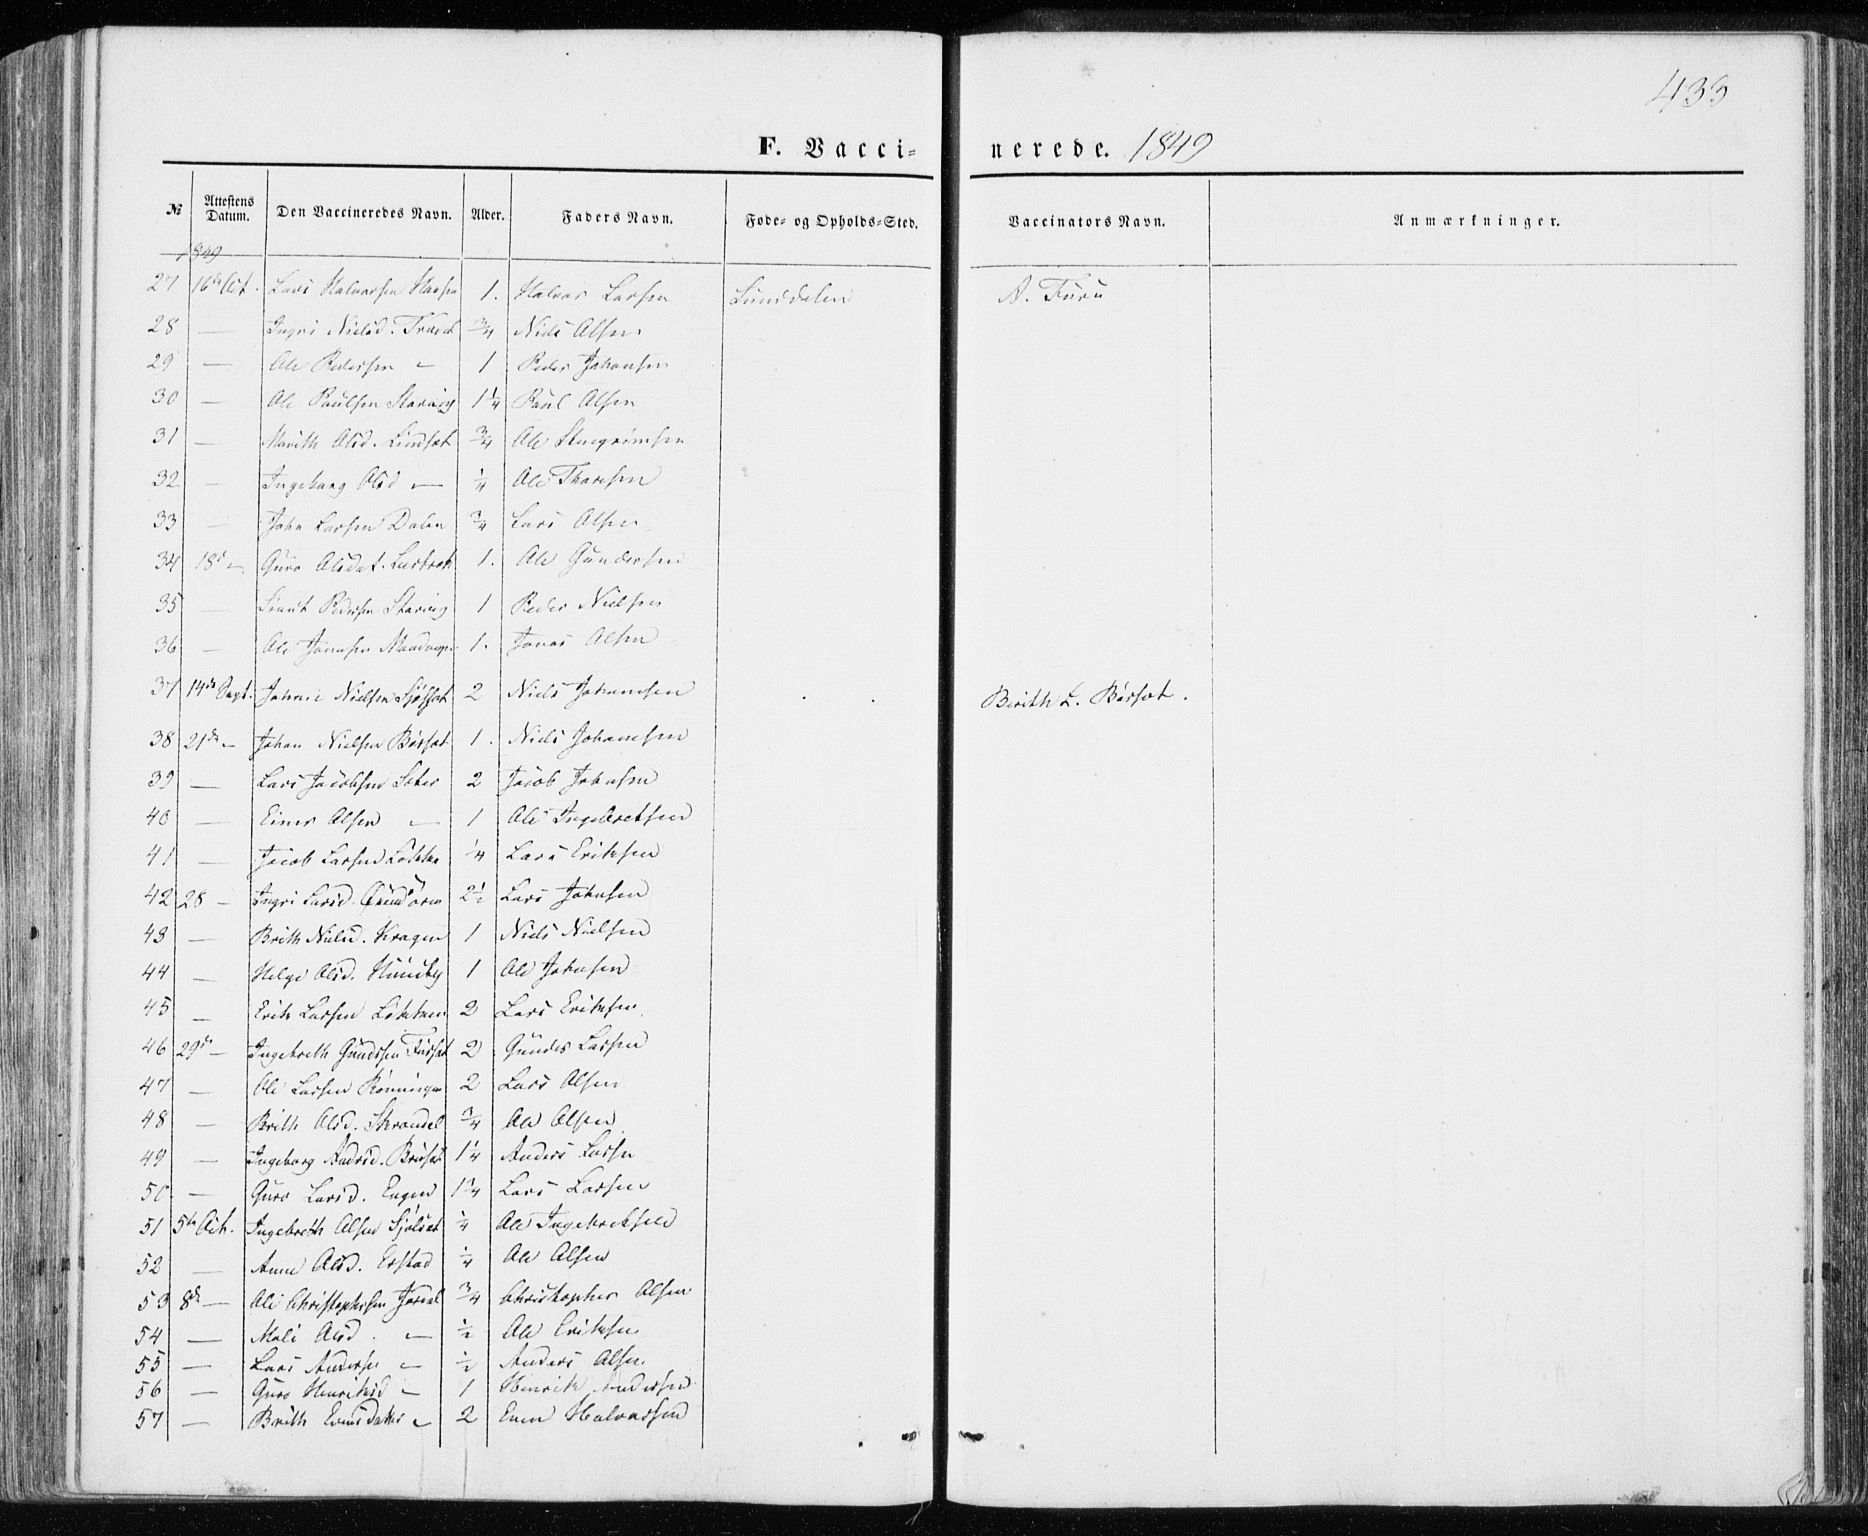 433
F. Vaccinerede. 1849
№ Attestens Datum. Den Vaccineredes Navn. Alder. Faders Navn. Føde- og Opholds-Sted. Vaccinators Navn. Anmærkninger.
1849
27 16de Oct. Lars Halvorsen 1. Halvor Larsen Lunddalen A. Furu
28 — Ingri Nielsd. ¾ Niels Olsen
29 — Ole Pedersen — 1 Peder Johansen
30 — Ole Paulsen 1¼ Paul Olsen
31 — Marith Olsd. Lindset ¾ Ole Steengrimsen
32 — Ingeborg Olsd — ¼ Ole Thoresen
33 — John Larsen Dalen ¾ Lars Olsen
34 18d — Guro Olsdat. 1. Ole Gundersen
35 — Pedersen Staring 1 Peder Nielsen
36 — Ole Jonasen 1. Jonas Olsen
37 14de Sept. Nielsen 2 Niels Johansen Berith L. Børset.
38 21de — Johan Nielsen Børset 1. Niels Johansen
39 — Lars Jacobsen Sæter 2 Jacob Johnsen
40 — Einer Olsen — 1 Ole Ingebretsen
41 — Jacob Larsen Løkken ¼ Lars Eriksen
42 28 — Ingri Larsd. 2½ Lars Johnsen
43 — Brith Nielsd. Kragen 1 Niels Nielsen
44 — Helge Olsd. 1 Ole Johnsen
45 — Erik Larsen Løkken 2 Lars Eriksen
46 29de — Ingebreth Gundersen 2 Gunder Larsen
47 — Ole Larsen Rønningen 2 Lars Olsen
48 — Brith Olsd. ¾ Ole Olsen
49 — Ingeborg Andersd. 1¼ Anders Larsen
50 — Guro Larsd. Engen 1¾ Lars Larsen
51 5te Oct. Ingebreth Olsen Sjølset ¼ Ole Ingebretsen
52 — Anne Olsd. Erstad ¼ Ole Olsen
53 8de — Ole Christophersen ¾ Christopher Olsen
54 — Mali Olsd. — ½ Ole Eriksen
55 — Lars Andersen — ½ Anders Olsen
56 — Guro Henriksd — 1 Henrik Andersen
57 — Brith Evensdatter — 2 Even Halvorsen